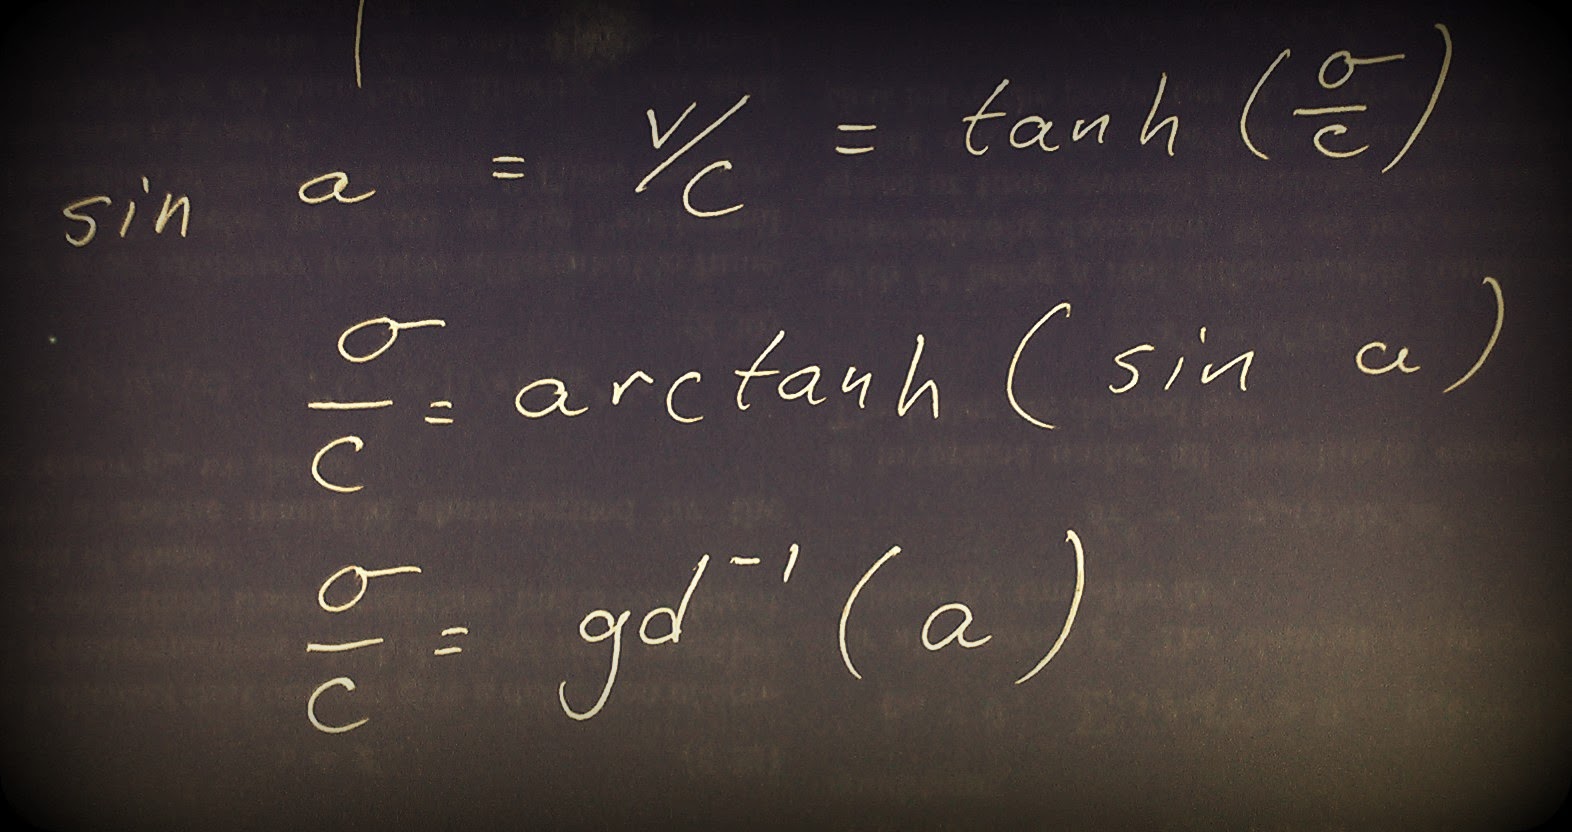 sin a = v/c = tanh (σ/c)
σ/c = arctanh ( sin a )
σ/c = gd⁻¹ ( a )